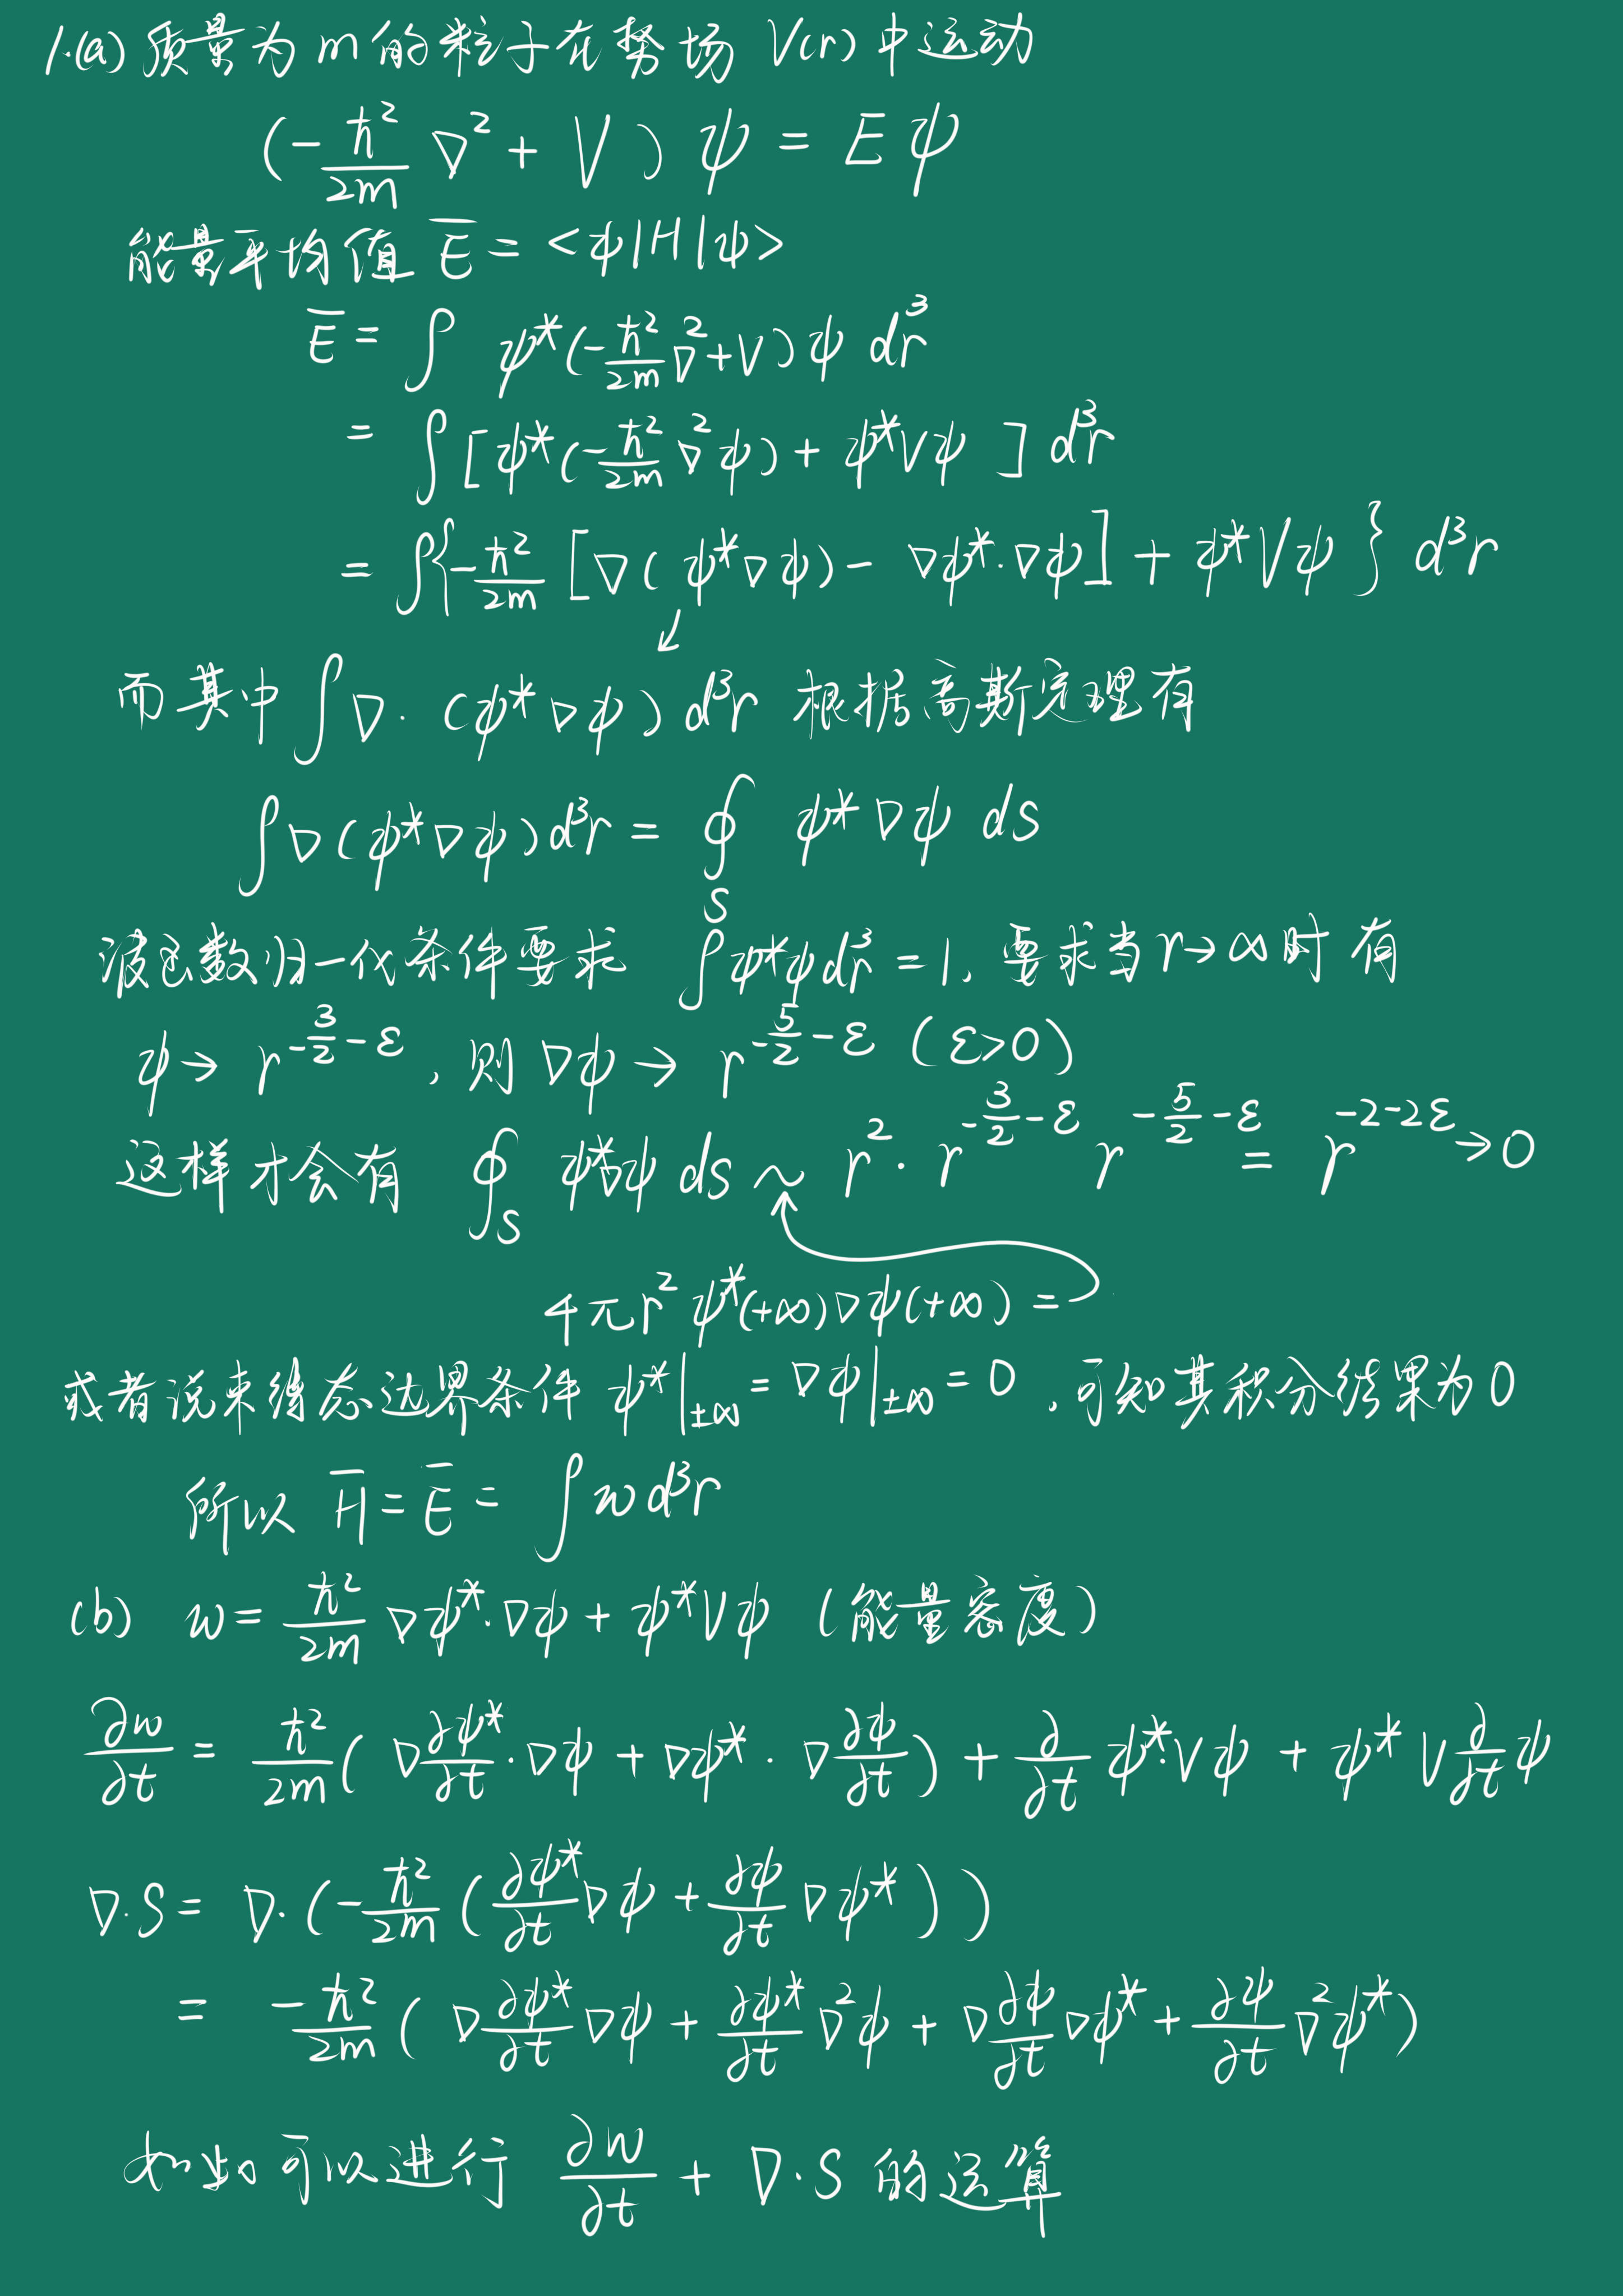 1.(a) 质量为 m 的粒子在势场 V(r) 中运动
(-ħ²/2m ∇² + V) ψ = E ψ
能量平均值 E̅ = <ψ|H|ψ>
E̅ = ∫ ψ*(-ħ²/2m ∇²+V)ψ dr³
= ∫[ψ*(-ħ²/2m ∇²ψ) + ψ*Vψ ] d³r
= ∫{-ħ²/2m [∇(ψ*∇ψ) - ∇ψ*·∇ψ] + ψ*Vψ } d³r
↙
而其中 ∫∇·(ψ*∇ψ) d³r 根据高斯定理有
∫∇(ψ*∇ψ)d³r = ∮_S ψ*∇ψ ds
波函数归一化条件要求 ∫ψ*ψdr³ = 1, 要求当 r→∞ 时 有
ψ → r^(-3/2-ε), 则 ∇ψ → r^(-5/2-ε) (ε>0)
这样才会有 ∮_S ψ*∇ψ ds ~ r²·r^(-3/2-ε) r^(-5/2-ε) = r^(-2-2ε) →0
4πr²ψ*(+∞)∇ψ(+∞) =
或者说束缚态边界条件 ψ*|±∞ = ∇ψ|±∞ = 0, 可知其积分结果为0
所以 H̅ = E̅ = ∫w d³r
(b) w = ħ²/2m ∇ψ*·∇ψ + ψ*Vψ (能量密度)
∂w/∂t = ħ²/2m (∇∂ψ*/∂t·∇ψ + ∇ψ*·∇∂ψ/∂t) + ∂/∂t ψ*·Vψ + ψ*V∂/∂t ψ
∇·S = ∇·(-ħ²/2m (∂ψ*/∂t ∇ψ + ∂ψ/∂t ∇ψ*))
= -ħ²/2m (∇∂ψ*/∂t ∇ψ + ∂ψ*/∂t ∇²ψ + ∇∂ψ/∂t ∇ψ* + ∂ψ/∂t ∇²ψ*)
如此可以进行 ∂w/∂t + ∇·S 的运算